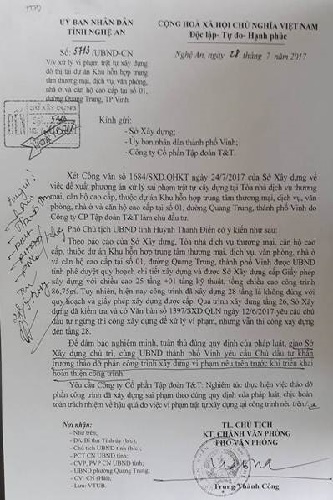 ỦY BAN NHÂN DÂN
TỈNH NGHỆ AN
CỘNG HOÀ XÃ HỘI CHỦ NGHĨA VIỆT NAM
Độc lập- Tự do- Hạnh phúc
Số: 5713/UBND-CN
Nghệ An, ngày 28 tháng 7 năm 2017
V/v xử lý vi phạm trật tự xây dựng
đô thị tại dự án Khu hỗn hợp trung
tâm thương mại, dịch vụ, văn phòng,
nhà ở và căn hộ cao cấp tại số 01,
đường Quang Trung, TP Vinh
Kính gửi:
- Sở Xây dựng;
- Ủy ban nhân dân thành phố Vinh;
- Công ty Cổ phần Tập đoàn T&T.
Xét Công văn số 1684/SXD.QHKT ngày 24/7/2017 của Sở Xây dựng về
việc đề xuất phương án xử lý sai phạm trật tự xây dựng tại Tòa nhà dịch vụ thương
mại, căn hộ cao cấp, thuộc dự án Khu hỗn hợp trung tâm thương mại, dịch vụ, văn
phòng, nhà ở và căn hộ cao cấp tại số 01, đường Quang Trung, thành phố Vinh do
Công ty CP Tập đoàn T&T làm chủ đầu tư.
Phó Chủ tịch UBND tỉnh Huỳnh Thanh Điền có ý kiến như sau:
Theo báo cáo của Sở Xây dựng, Tòa nhà dịch vụ thương mại, căn hộ cao
cấp, thuộc dự án Khu hỗn hợp trung tâm thương mại, dịch vụ, văn phòng, nhà ở
và căn hộ cao cấp tại số 01, đường Quang Trung, thành phố Vinh được UBND
tỉnh phê duyệt quy hoạch chi tiết xây dựng và được Sở Xây dựng cấp Giấy phép
xây dựng với chiều cao 25 tầng +01 tầng kỹ thuật, tổng chiều cao công trình
86,75m. Tuy nhiên, hiện nay, công trình đã xây dựng 28 tầng là không đúng với
quy hoạch và giấy phép xây dựng được cấp. Quá trình xây dựng tầng 26, Sở Xây
dựng đã kiểm tra và có Văn bản số 1397/SXD.QLN ngày 12/6/2017 yêu cầu chủ
đầu tư ngừng thi công xây dựng để xử lý vi phạm, nhưng vẫn thi công xây dựng
đến tầng 28.
Để đảm bảo nghiêm minh, tuân thủ đúng quy định của pháp luật, giao Sở
Xây dựng chủ trì, cùng UBND thành phố Vinh yêu cầu Chủ đầu tư khẩn
trương tháo dỡ phần công trình xây dựng vi phạm nêu trên trước khi triển khai
hoàn thiện công trình.
Yêu cầu Công ty Cổ phần Tập đoàn T&T: Nghiêm túc thực hiện việc tháo dỡ
phần công trình đã xây dựng sai phạm theo đúng quy định của pháp luật, chịu hoàn
toàn trách nhiệm về hậu quả do việc vi phạm trật tự xây dựng tại công trình nói trên./.
Nơi nhận:
- Như trên;
- Chủ tịch UBND tỉnh;
- PCT CN UBND tỉnh;
- CVP, PVP CN UBND tỉnh;
- UBND phường Quang Trung;
- CV: CN
- Lưu: VTUB.
TL. CHỦ TỊCH
KT. CHÁNH VĂN PHÒNG
PHÓ VĂN PHÒNG
Trương Thành Công